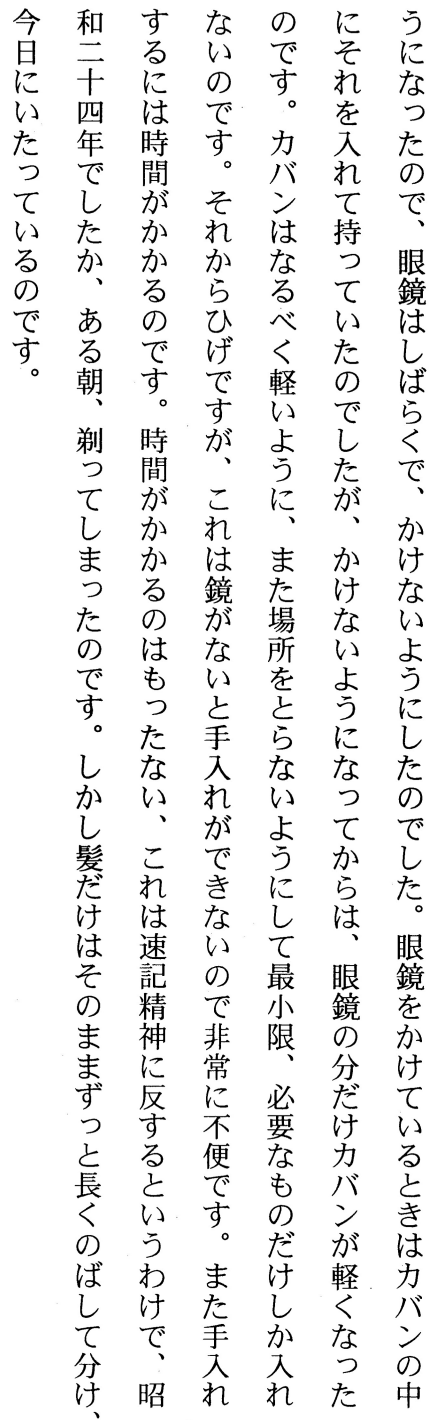 うになったので、眼鏡はしばらくで、かけないようにしたのでした。眼鏡をかけているときはカバンの中
にそれを入れて持っていたのでしたが、かけないようになってからは、眼鏡の分だけカバンが軽くなった
のです。カバンはなるべく軽いように、また場所をとらないようにして最小限、必要なものだけしか入れ
ないのです。それからひげですが、これは鏡がないと手入れができないので非常に不便です。また手入れ
するには時間がかかるのです。時間がかかるのはもったない、これは速記精神に反するというわけで、昭
和二十四年でしたか、ある朝、剃ってしまったのです。しかし髪だけはそのままずっと長くのばして分け、
今日にいたっているのです。